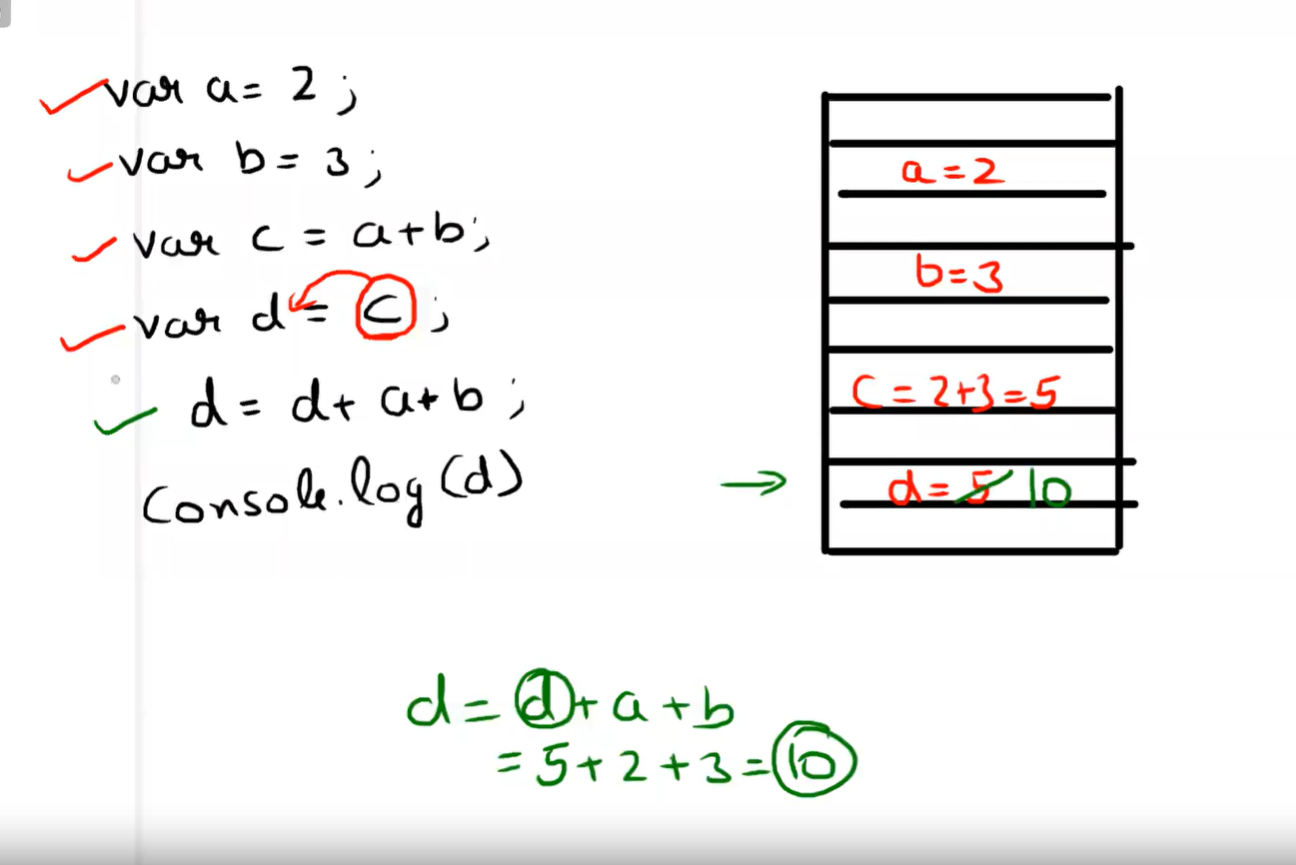 var a = 2 ;
var b = 3 ;
var c = a+b ;
var d = c ;
d = d+ a+b ;
Console.log (d)
a = 2
b = 3
C = 2+3 = 5
d = 5 10
→
d = d + a + b
= 5 + 2 + 3 = 10